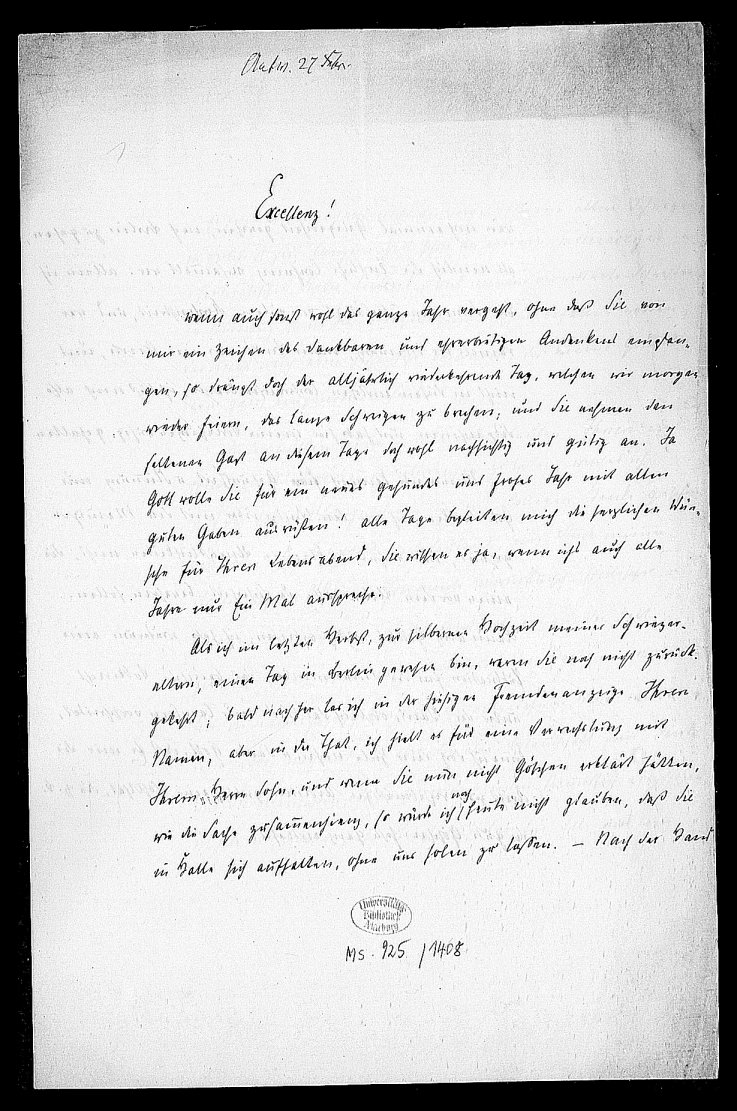 Antw. 27 Febr.
Excellenz!
wenn auch sonst wohl das ganze Jahr vergeht, ohne daß Sie von
mir ein Zeichen des dankbaren und ehrerbietigen Andenkens empfan-
gen, so drängt doch der alljährlich wiederkehrende Tag, welchen wir morgen
wieder feiern, das lange Schweigen zu brechen; und Sie nehmen den
seltenen Gast an diesem Tage doch wohl nachsichtig und gütig an. Ja
Gott wolle Sie für ein neues gesundes und frohes Jahr mit allen
guten Gaben ausrüsten! alle Tage begleiten mich die herzlichen Wün-
sche für Ihren Lebensabend, Sie wissen es ja, wenn ichs auch alle
Jahre nur Ein Mal ausspreche.
Als ich im letzten Herbst, zur silbernen Hochzeit meiner Schwieger-
eltern, einen Tag in Berlin gewesen bin, waren Sie noch nicht zurück-
gekehrt; bald nachher las ich in der hiesigen Fremdenanzeige Ihren
Namen, aber in der That, ich hielt es für eine Verwechslung mit
Ihrem Herrn Sohn, und wenn Sie nun nicht Göschen erklärt hätten,
wie die Sache zusammenhieng, so würde ich noch heute nicht glauben, daß Sie
in Halle sich aufhalten, ohne uns holen zu lassen. – Nach der Hand
Universitäts-
Bibliothek
Marburg
MS. 925 / 1408